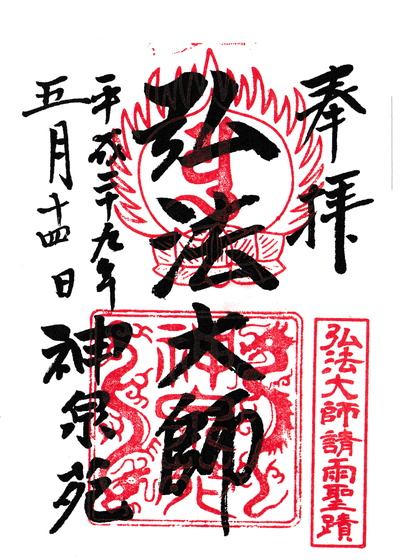 奉拝
弘法大師請雨聖蹟
弘法大師
平成二十九年
五月十四日
神泉苑
神泉苑